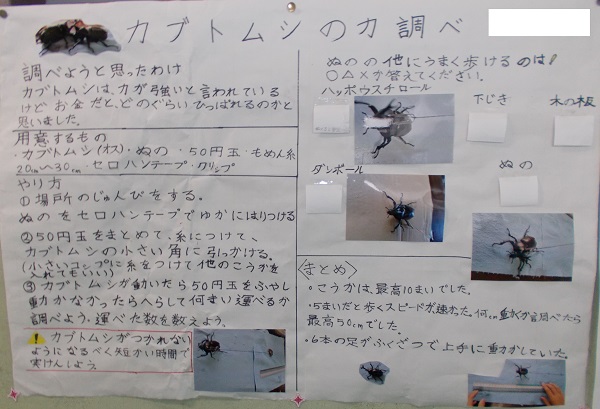 カブトムシの力調べ
調べようと思ったわけ
カブトムシは、力が強いと言われている
けど お金だと、どのぐらいひっぱれるのかと
思いました。
用意するもの
・カブトムシ(オス)・ぬの・50円玉・もめん糸
20cm〜30cm・セロハンテープ・クリップ
やり方
①場所のじゅんびをする。
ぬのをセロハンテープでゆかにはりつける
②50円玉をまとめて、糸につけて、
カブトムシの小さい角に引っかける。
(小さいコップに糸をつけて他のこうかを
入れてもいい)
③カブトムシが動いたら50円玉をふやし
動かなかったらへらして何まい運べるか
調べよう。運べた数を数えよう。
カブトムシがつかれない
ようになるべく短かい時間で
実けんしよう。
ぬのの他にうまく歩けるのは!
○△×か答えてください。
ハッポウスチロール
下じき
木の板
ダンボール
ぬの
〈まとめ〉
・こうかは、最高10まいでした。
・5まいだと歩くスピードが速かった。何cm動くか調べたら
最高50cmでした。
・6本の足がふくざつで上手に動かしていた。